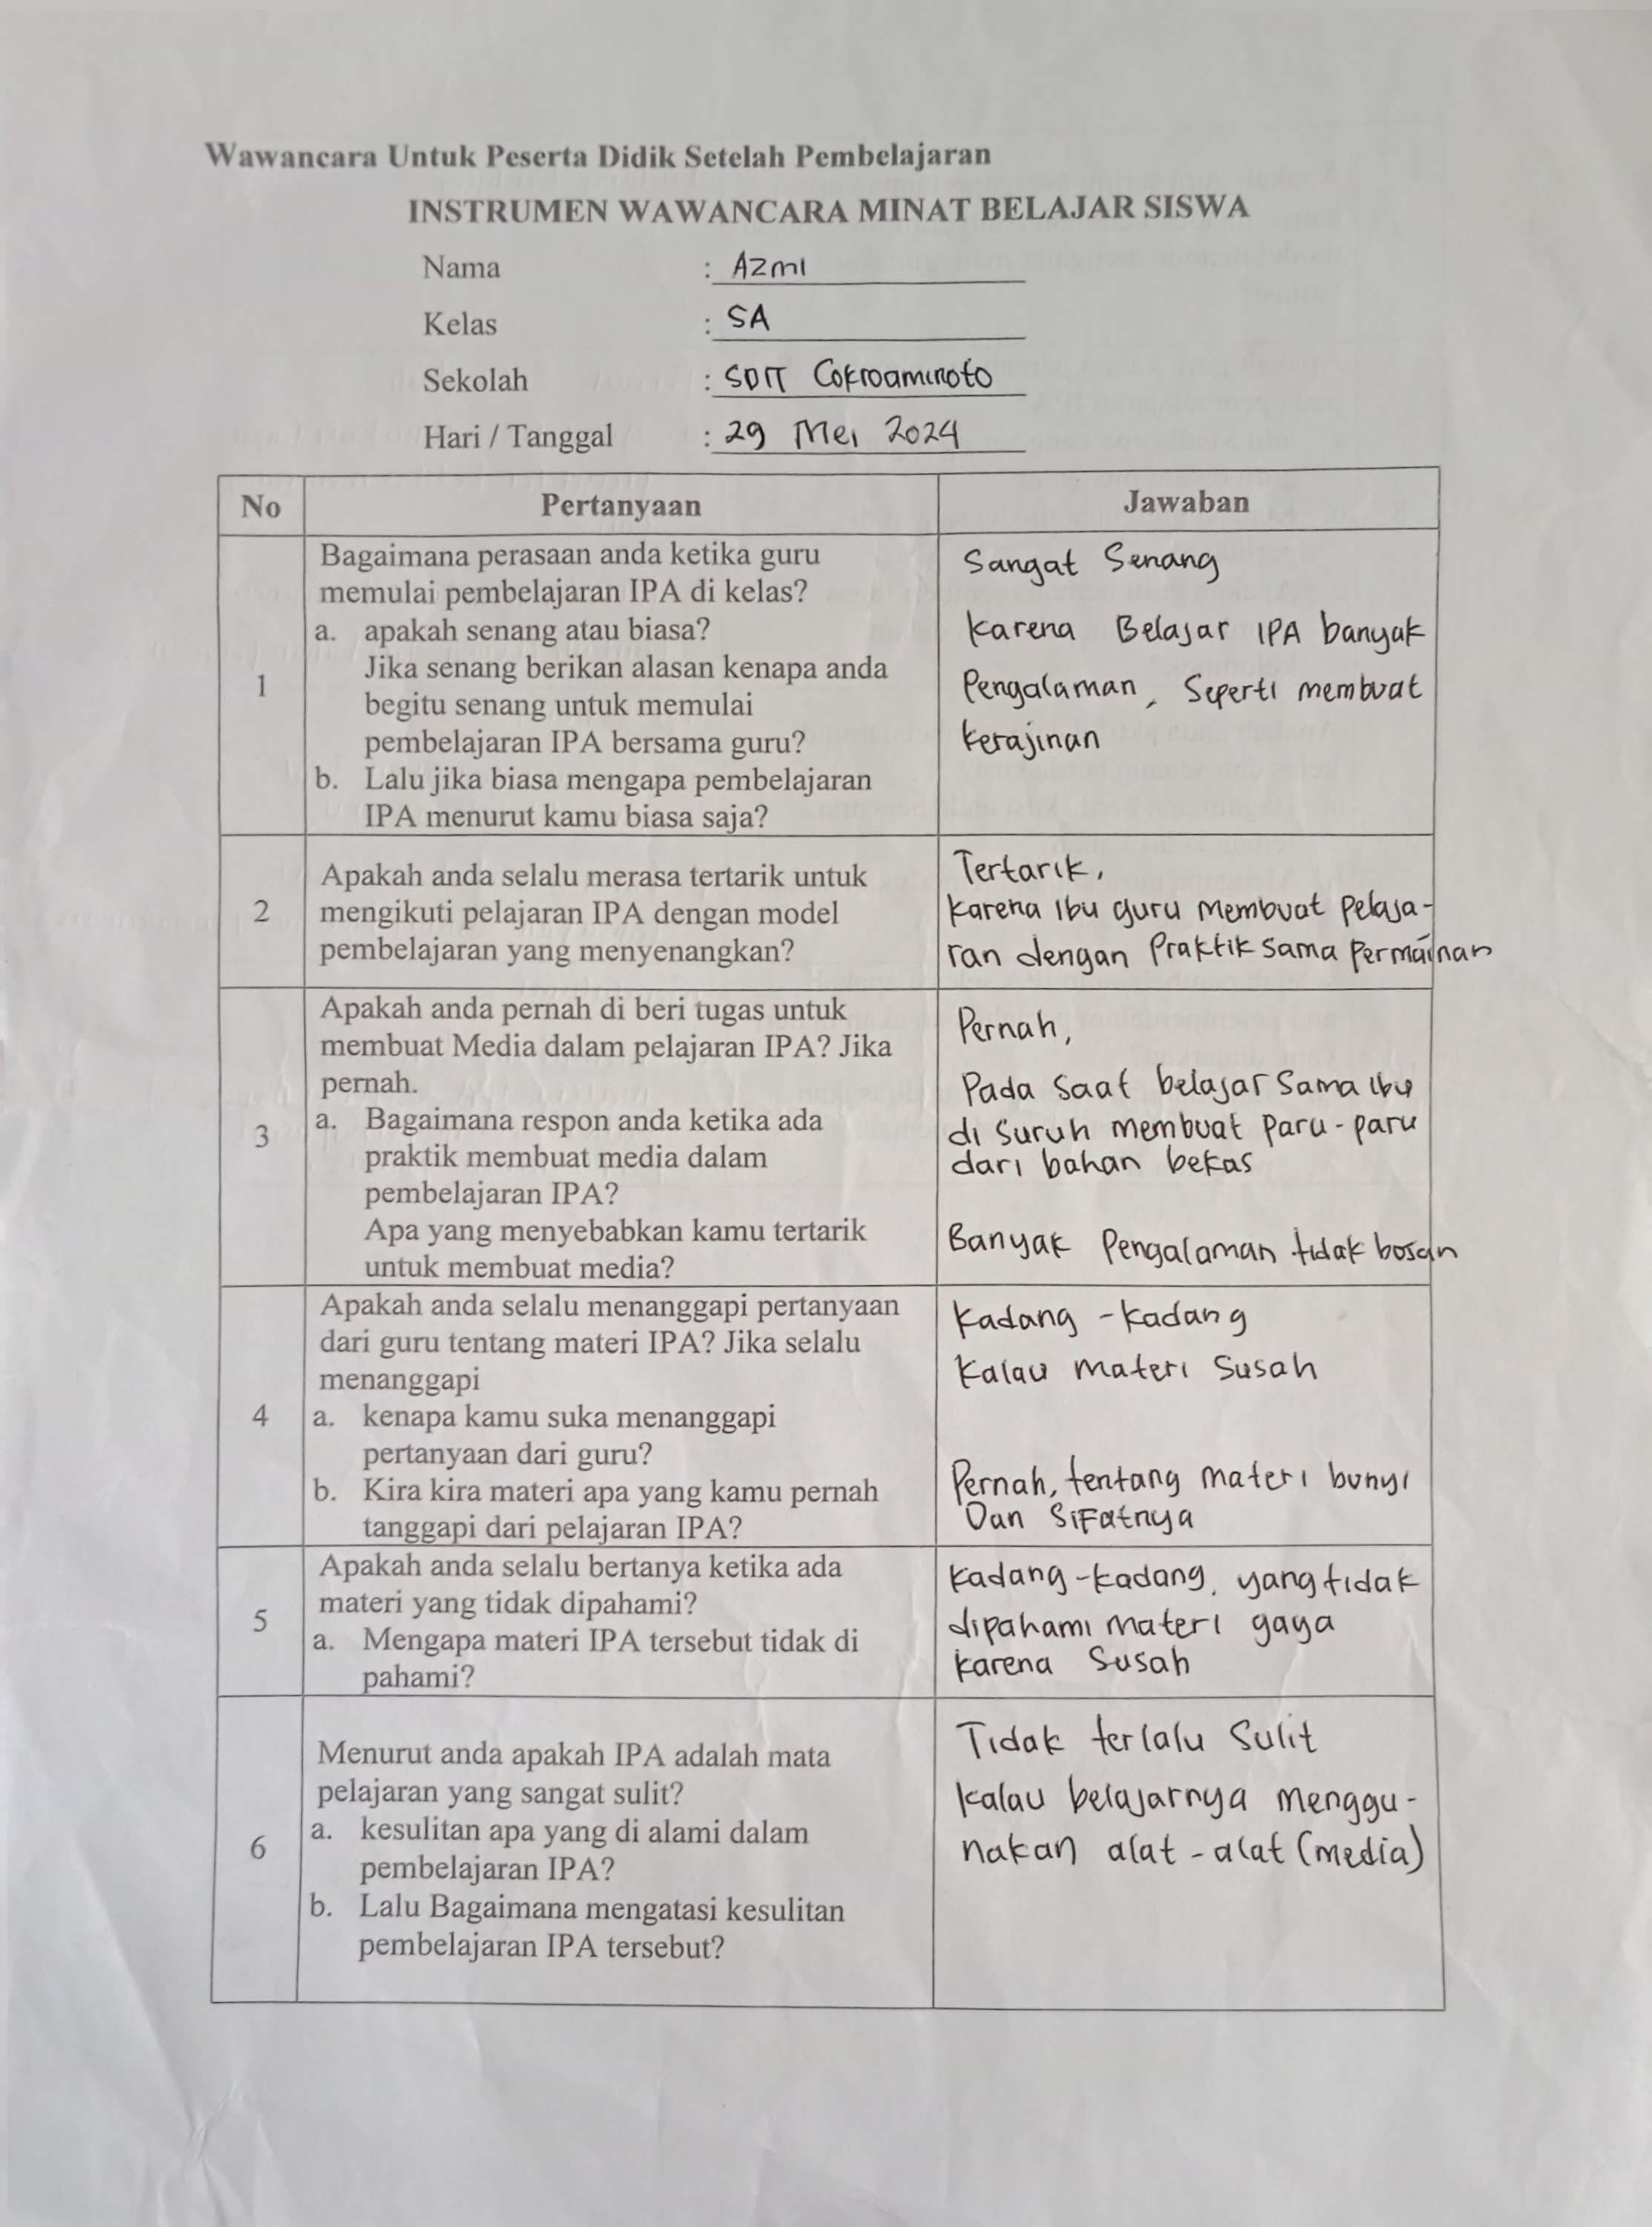 Wawancara Untuk Peserta Didik Setelah Pembelajaran
INSTRUMEN WAWANCARA MINAT BELAJAR SISWA
Nama : Azmi
Kelas : 5A
Sekolah : SDIT Cokroaminoto
Hari / Tanggal : 29 Mei 2024
No Pertanyaan Jawaban
1
Bagaimana perasaan anda ketika guru
memulai pembelajaran IPA di kelas?
a. apakah senang atau biasa?
Jika senang berikan alasan kenapa anda
begitu senang untuk memulai
pembelajaran IPA bersama guru?
b. Lalu jika biasa mengapa pembelajaran
IPA menurut kamu biasa saja?
Sangat Senang
Karena Belajar IPA banyak
Pengalaman, Seperti membuat
kerajinan
2
Apakah anda selalu merasa tertarik untuk
mengikuti pelajaran IPA dengan model
pembelajaran yang menyenangkan?
Tertarik,
Karena Ibu guru Membuat Pelaja-
ran dengan Praktik sama Permainan
3
Apakah anda pernah di beri tugas untuk
membuat Media dalam pelajaran IPA? Jika
pernah.
a. Bagaimana respon anda ketika ada
praktik membuat media dalam
pembelajaran IPA?
Apa yang menyebabkan kamu tertarik
untuk membuat media?
Pernah,
Pada Saat belajar Sama ibu
di Suruh membuat Paru-paru
dari bahan bekas
Banyak Pengalaman tidak bosan
4
Apakah anda selalu menanggapi pertanyaan
dari guru tentang materi IPA? Jika selalu
menanggapi
a. kenapa kamu suka menanggapi
pertanyaan dari guru?
b. Kira kira materi apa yang kamu pernah
tanggapi dari pelajaran IPA?
Kadang-kadang
Kalau materi Susah
Pernah, tentang Materi bunyi
Dan Sifatnya
5
Apakah anda selalu bertanya ketika ada
materi yang tidak dipahami?
a. Mengapa materi IPA tersebut tidak di
pahami?
Kadang-kadang, yang tidak
dipahami materi gaya
karena Susah
6
Menurut anda apakah IPA adalah mata
pelajaran yang sangat sulit?
a. kesulitan apa yang di alami dalam
pembelajaran IPA?
b. Lalu Bagaimana mengatasi kesulitan
pembelajaran IPA tersebut?
Tidak terlalu Sulit
kalau belajarnya Menggu-
nakan alat-alat (media)